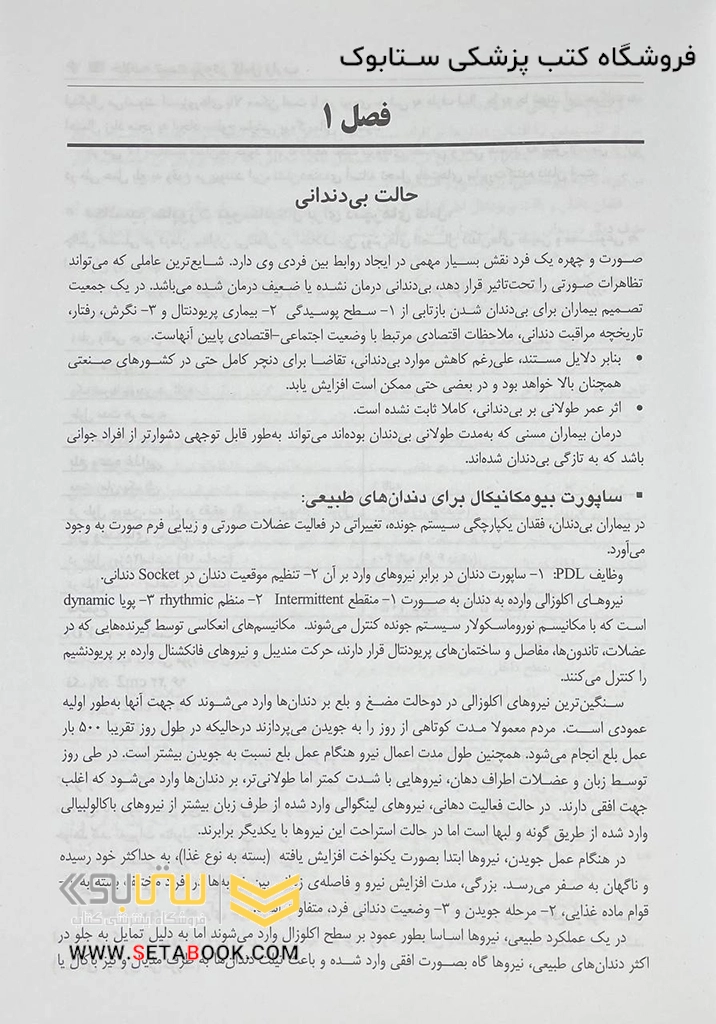 فروشگاه کتب پزشکی ستابوک
فصل ۱
حالت بی‌دندانی
صورت و چهره یک فرد نقش بسیار مهمی در ایجاد روابط بین فردی وی دارد. شایع‌ترین عاملی که می‌تواند
تظاهرات صورتی را تحت‌تاثیر قرار دهد، بی‌دندانی درمان نشده یا ضعیف درمان شده می‌باشد. در یک جمعیت
تصمیم بیماران برای بی‌دندان شدن بازتابی از ۱- سطح پوسیدگی ۲- بیماری پریودنتال و ۳- نگرش، رفتار،
تاریخچه مراقبت دندانی، ملاحظات اقتصادی مرتبط با وضعیت اجتماعی-اقتصادی پایین آنهاست.
• بنابر دلایل مستند، علی‌رغم کاهش موارد بی‌دندانی، تقاضا برای دنچر کامل حتی در کشورهای صنعتی
همچنان بالا خواهد بود و در بعضی حتی ممکن است افزایش یابد.
• اثر عمر طولانی بر بی‌دندانی، کاملا ثابت نشده است.
درمان بیماران مسنی که به‌مدت طولانی بی‌دندان بوده‌اند می‌تواند به‌طور قابل توجهی دشوارتر از افراد جوانی
باشد که به تازگی بی‌دندان شده‌اند.
▪ ساپورت بیومکانیکال برای دندان‌های طبیعی:
در بیماران بی‌دندان، فقدان یکپارچگی سیستم جونده، تغییراتی در فعالیت عضلات صورتی و زیبایی فرم صورت به وجود
می‌آورد.
وظایف PDL: ۱- ساپورت دندان در برابر نیروهای وارد بر آن ۲- تنظیم موقعیت دندان در Socket دندانی.
نیروهای اکلوزالی وارده به دندان به صورت ۱- منقطع Intermittent ۲- منظم rhythmic ۳- پویا dynamic
است که با مکانیسم نوروماسکولار سیستم جونده کنترل می‌شوند. مکانیسم‌های انعکاسی توسط گیرنده‌هایی که در
عضلات، تاندون‌ها، مفاصل و ساختمان‌های پریودنتال قرار دارند، حرکت مندیبل و نیروهای فانکشنال وارده بر پریودنشیم
را کنترل می‌کنند.
سنگین‌ترین نیروهای اکلوزالی در دوحالت مضغ و بلع بر دندان‌ها وارد می‌شوند که جهت آنها به‌طور اولیه
عمودی است. مردم معمولا مدت کوتاهی از روز را به جویدن می‌پردازند درحالیکه در طول روز تقریبا ۵۰۰ بار
عمل بلع انجام می‌شود. همچنین طول مدت اعمال نیرو هنگام عمل بلع نسبت به جویدن بیشتر است. در طی روز
توسط زبان و عضلات اطراف دهان، نیروهایی با شدت کمتر اما طولانی‌تر، بر دندان‌ها وارد می‌شود که اغلب
جهت افقی دارند. در حالت فعالیت دهانی، نیروهای لینگوالی وارد شده از طرف زبان بیشتر از نیروهای باکالولبیالی
وارد شده از طریق گونه و لبها است اما در حالت استراحت این نیروها با یکدیگر برابرند.
در هنگام عمل جویدن، نیروها ابتدا بصورت یکنواخت افزایش یافته (بسته به نوع غذا)، به حداکثر خود رسیده
و ناگهان به صفر می‌رسد. بزرگی، مدت افزایش نیرو و فاصله‌ی بین در افراد مختلف بسته به
قوام ماده غذایی، ۲- مرحله جویدن و ۳- وضعیت دندانی فرد، متفاوت است.
در یک عملکرد طبیعی، نیروها اساسا بطور عمود بر سطح اکلوزال وارد می‌شوند اما به دلیل تمایل به جلو در
اکثر دندان‌های طبیعی، نیروها گاه بصورت افقی وارد شده و باعث تیلت دندان‌ها به طرف مدیال و نیز باکال یا
ستابوک
فروشگاه اینترنتی کتاب
WWW.SETABOOK.COM